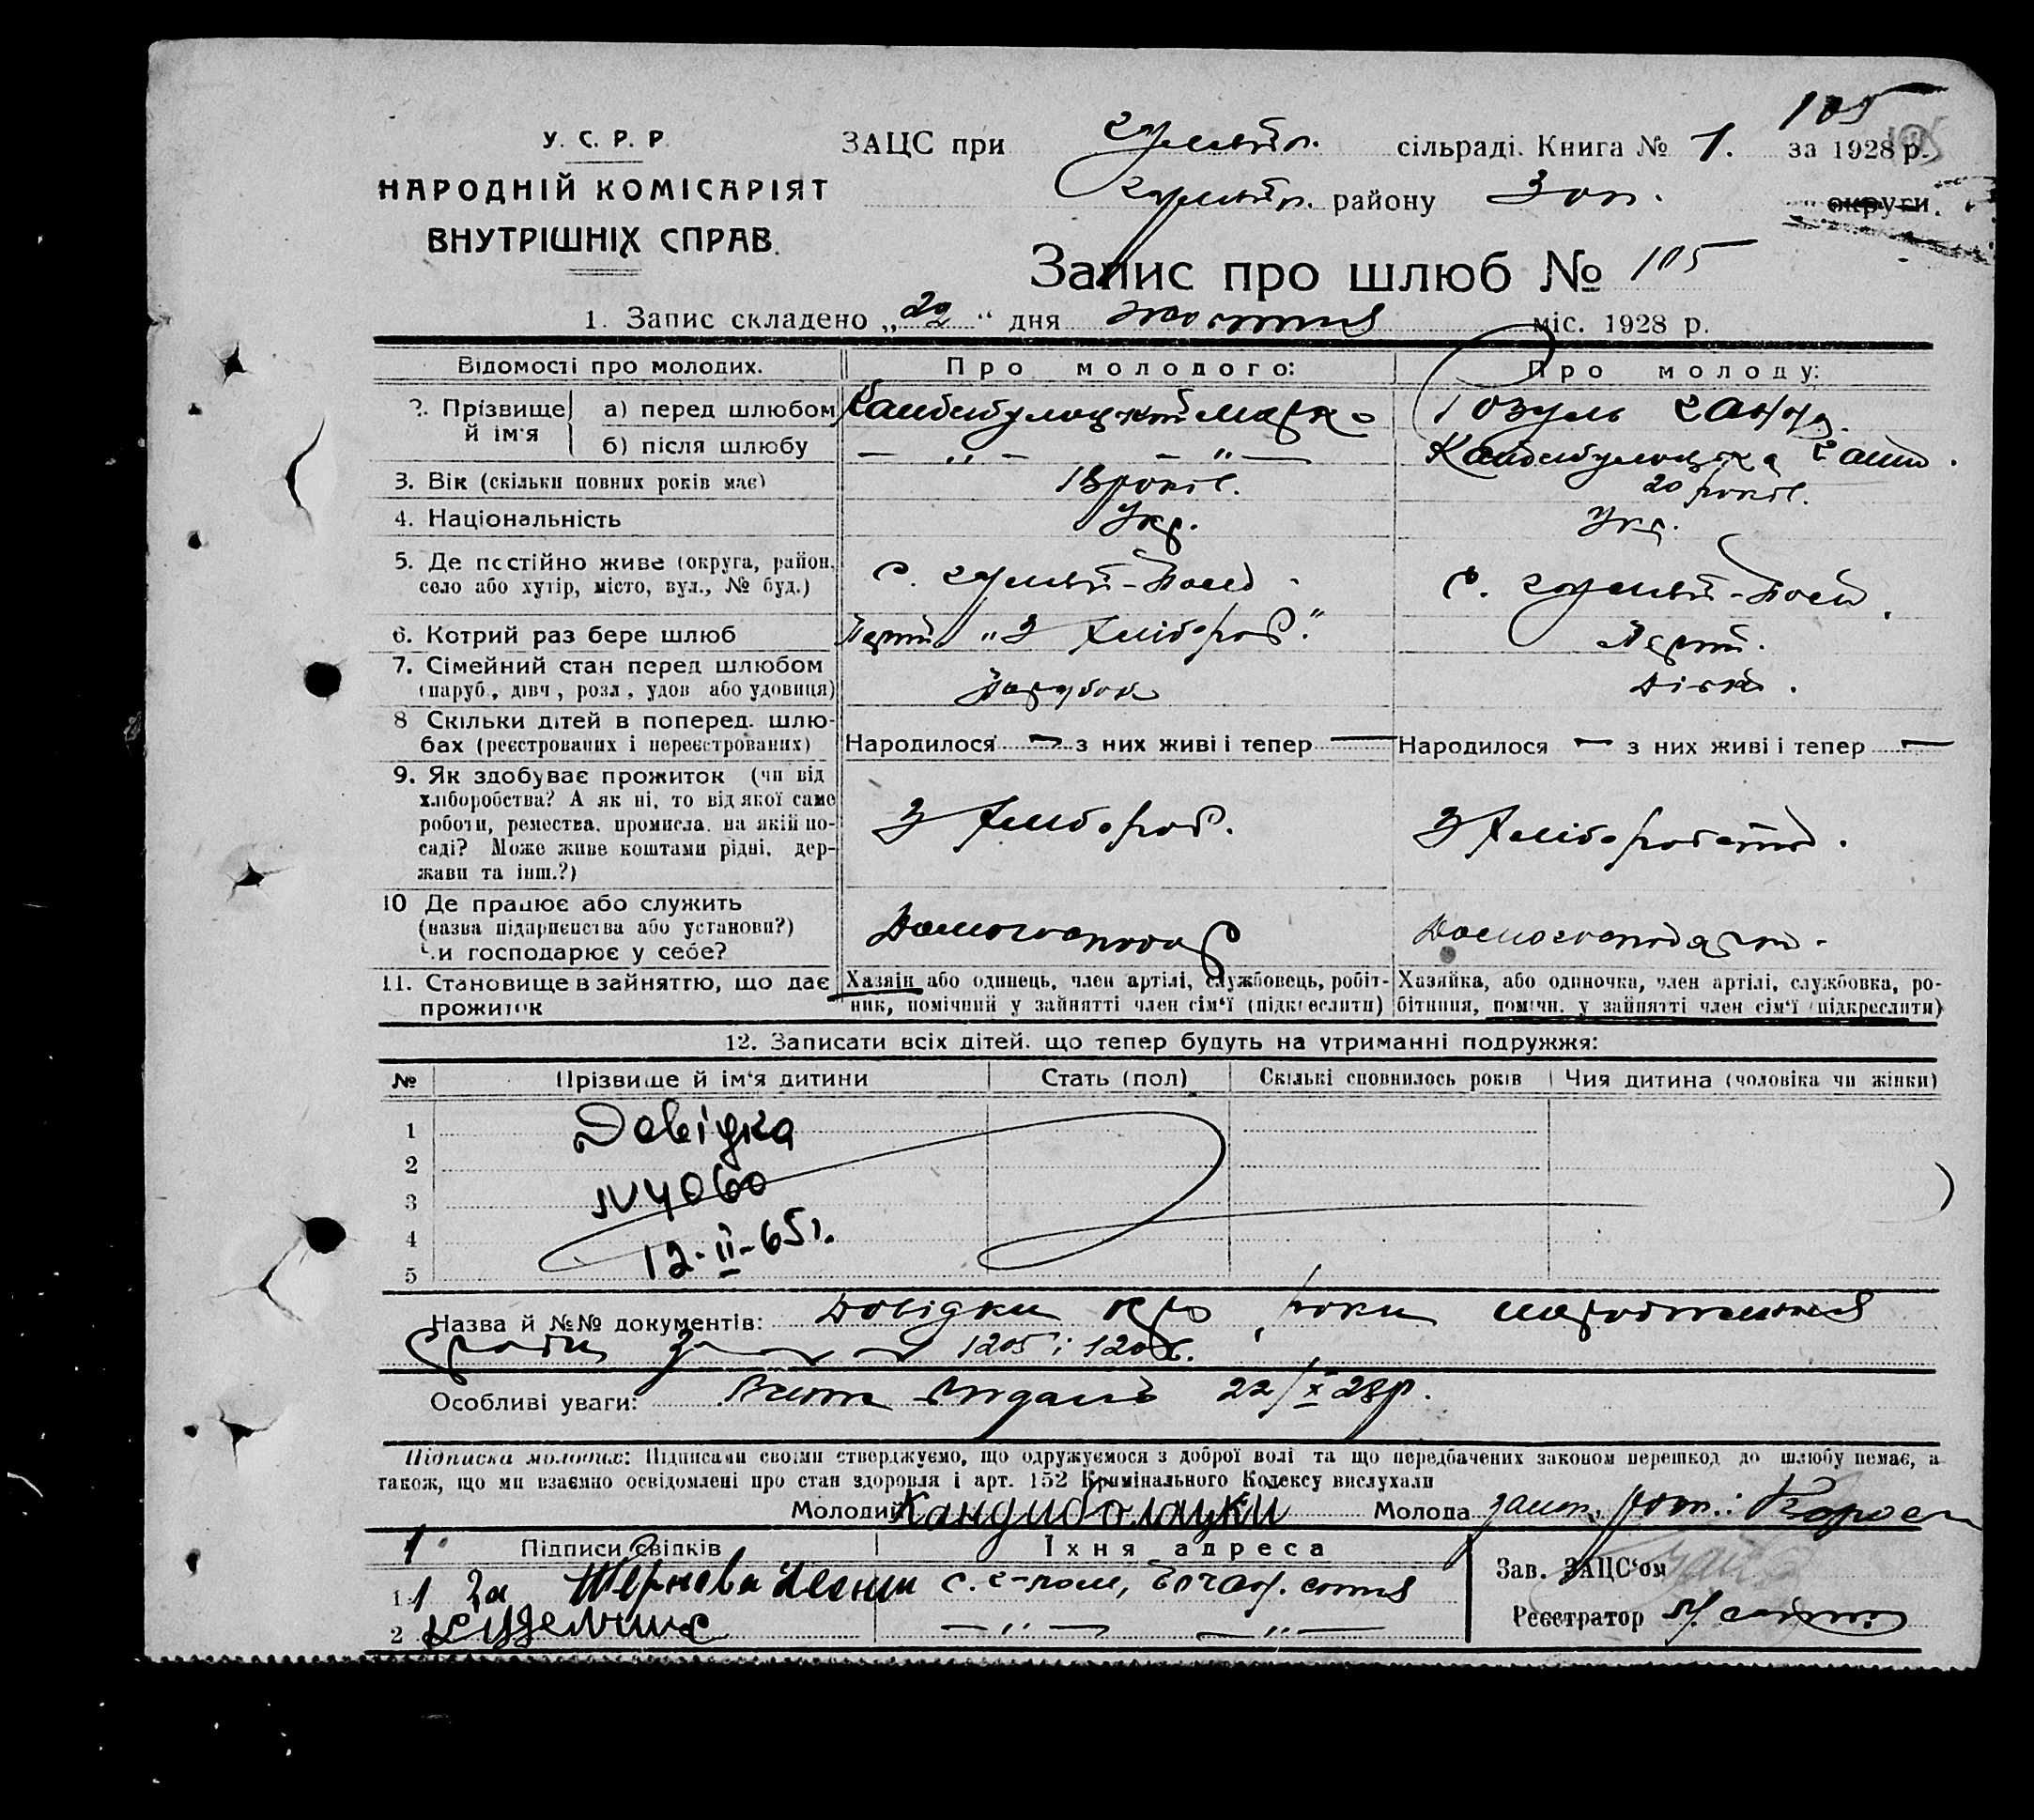 105
У. С. Р. Р.
НАРОДНІЙ КОМІСАРІЯТ
ВНУТРІШНІХ СПРАВ.
ЗАЦС при Гуляйп. сільраді. Книга № 1. за 1928 р.
Гуляйп. району Зап. округи.
Запис про шлюб № 105
1. Запис складено „22“ дня жовтня міс. 1928 р.
Відомості про молодих. Про молодого: Про молоду:
2. Прізвище й ім'я а) перед шлюбом Кандибулоцкий Марко Гозуль Ганна
б) після шлюбу — „ — — „ — Кандибулоцька Ганна.
3. Вік (скільки повних років має) 18 років. 20 років.
4. Національність Укр. Укр.
5. Де постійно живе (округа, район, село або хутір, місто, вул., № буд.) с. Гуляй-Поле. с. Гуляй-Поле.
6. Котрий раз бере шлюб Перший „З хлібороб.“ Перший.
7. Сімейний стан перед шлюбом (паруб., дівч., розл., удов або удовиця) Парубок Дівка.
8 Скільки дітей в поперед. шлюбах (реєстрованих і нереєстрованих) Народилося — з них живі і тепер — Народилося — з них живі і тепер —
9. Як здобуває прожиток (чи від
хліборобства? А як ні, то від якої саме
роботи, ремества, промисла, на якій посаді? Може живе коштами рідні, держави та інш.?) З хлібороб. З хліборобства.
10 Де працює або служить
(назва підприєнства або установи?)
Чи господарює у себе? Домогосподар Домогосподарка.
11. Становище в зайняттю, що дає прожиток
Хазяін або одинець, член артілі, службовець, робітник, помічний у зайнятті член сім'ї (підкреслити)
Хазяйка, або одиночка, член артілі, службовка, робітниця, помічн. у зайнятті член сім'ї (підкреслити)
12. Записати всіх дітей, що тепер будуть на утриманні подружжя:
№ Прізвище й ім'я дитини Стать (пол) Скількі сповнилось років Чия дитина (чоловіка чи жінки)
1 Довідка
2
3 N 4060
4 12-II-65 г.
5
Назва й №№ документів: Довідки про роки народження
1205 і 1206.
Особливі уваги: 22/X 28р.
Підписка молодих: Підписами своїми стверджуємо, що одружуємося з доброї волі та що передбачених законом перешкод до шлюбу немає, а
також, що ми взаємно освідомлені про стан здоровля і арт. 152 Кримінального Кодексу вислухали
Молодий Кандиболацки Молода
Підписи свідків Їхня адреса
1. За с. Г-поле,
2 — „ — — „ —
Зав. ЗАЦС'ом
Реєстратор